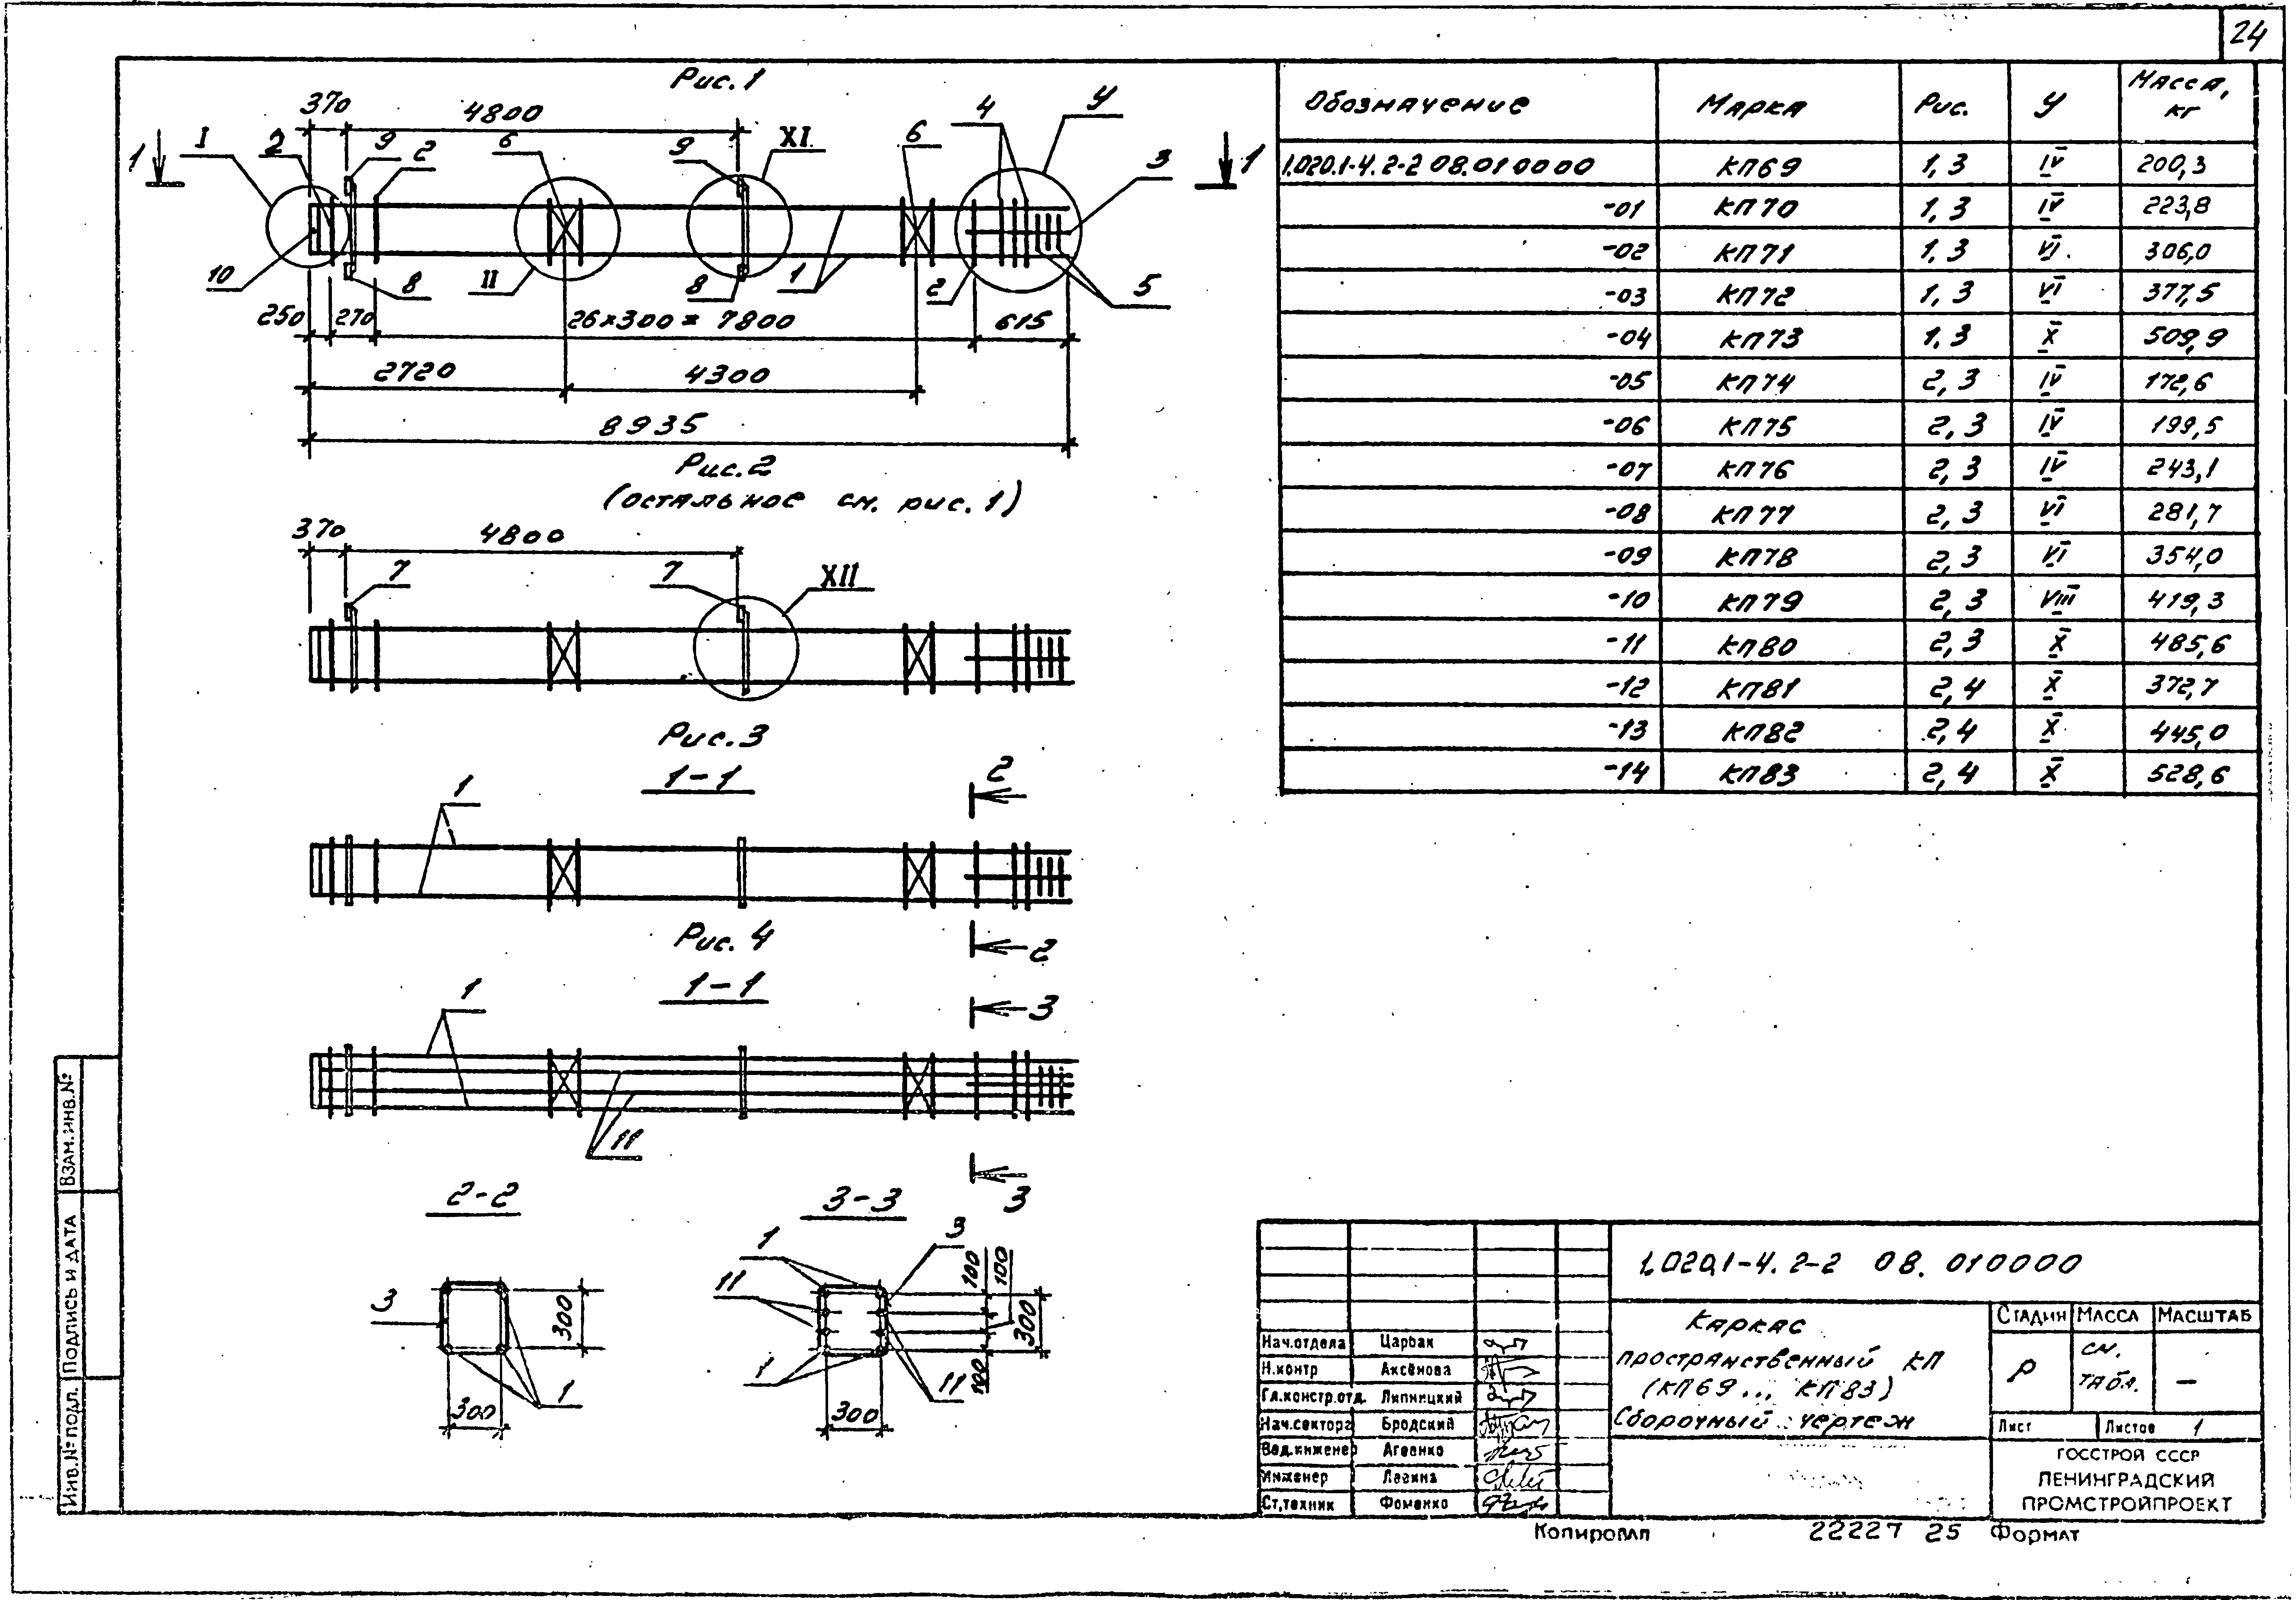 24
Рис. 1
370
4800
1
I
2
9
2
6
9
XI
6
4
У
3
1
10
8
II
8
1
2
5
250
270
26×300 = 7800
615
2720
4300
8935
Рис. 2
(остальное см. рис. 1)
370
4800
7
7
XII
Рис. 3
1-1
1
2
2
Рис. 4
1-1
1
3
11
3
2-2
3
300
300
1
3-3
1
3
11
1
11
100
100
100
300
300
Обозначение Марка Рис. У Масса, кг
1.020.1-4. 2-2 08.010000 КП69 1, 3 IV 200,3
-01 КП70 1, 3 IV 223,8
-02 КП71 1, 3 VI 306,0
-03 КП72 1, 3 VI 377,5
-04 КП73 1, 3 X 509,9
-05 КП74 2, 3 IV 172,6
-06 КП75 2, 3 IV 199,5
-07 КП76 2, 3 IV 243,1
-08 КП77 2, 3 VI 281,7
-09 КП78 2, 3 VI 354,0
-10 КП79 2, 3 VIII 419,3
-11 КП80 2, 3 X 485,6
-12 КП81 2, 4 X 372,7
-13 КП82 2, 4 X 445,0
-14 КП83 2, 4 X 528,6
Инв.№ подл. Подпись и дата Взам.инв.№
1.020.1-4. 2-2 08. 010000
Каркас
пространственный КП
(КП69... КП83)
Сборочный чертеж
Стадия Масса Масштаб
Р см. табл. —
Лист Листов 1
ГОССТРОЙ СССР
ЛЕНИНГРАДСКИЙ
ПРОМСТРОЙПРОЕКТ
Нач.отдела Царбак
Н.контр Аксёнова
Гл.констр.отд. Липницкий
Нач.сектора Бродский
Вед.инженер Агеенко
Инженер Лагина
Ст.техник Фоменко
Копировал 22227 25 Формат